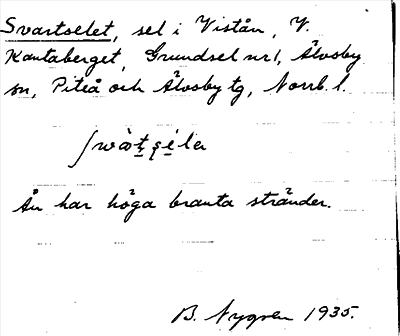 Svartselet, sel i Vistån, V.
Kantaberget, Grundsel nr 1, Älvsby
sn, Piteå och Älvsby tg, Norrb. l.
Ån har höga branta stränder.
B. Nygren 1935.